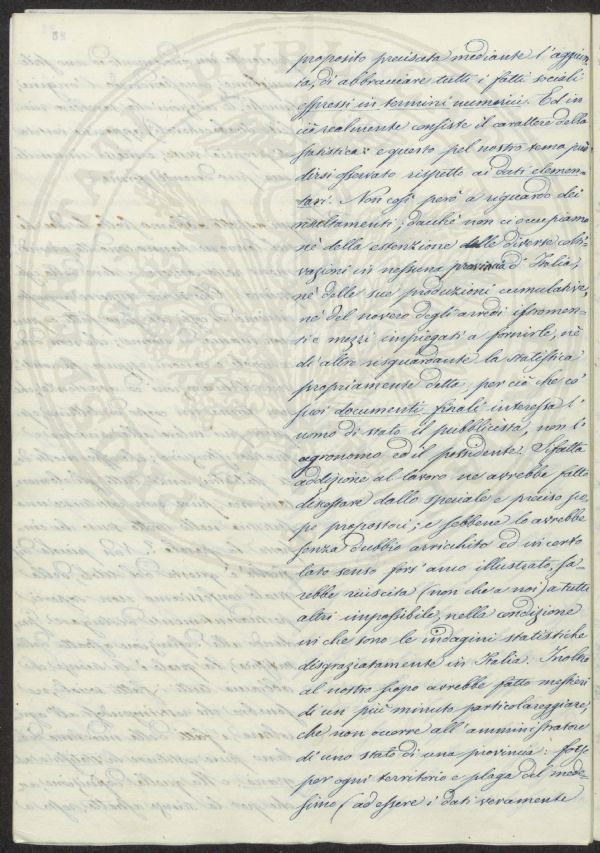 proposito precisata mediante l'aggiun-
ta, di abbracciare tutti i fatti sociali
espressi in termini numerici. Ed in
ciò realmente consiste il carattere della
statistica: e questo pel nostro tema può
dirsi osservato rispetto ai dati elemen-
tari. Non così però a riguardo dei
risultamenti; dacchè non ci occupiamo
nè della estenzione delle diverse colti-
vazioni in nessuna provincia d'Italia,
nè delle sue produzioni cumulative,
nè del novero degli arredi istromen-
ti e mezzi impiegati a fornirle, nè
di altro risguardante la statistica
propriamente detta, per ciò che co'
suoi documenti finali interessa l'
uomo di stato il pubblicista, non l'
agronomo ed il possidente. Sifatta
addizione al lavoro ne avrebbe fatto
discostare dallo speciale e preciso sco-
po propostoci; e sebbene lo avrebbe
senza dubbio arricchito ed in certo
lato senso fors'anco illustrato, sa-
rebbe riuscita (non che a noi) a tutti
altri impossibile, nella condizione
in che sono le indagini statistiche
disgraziatamente in Italia. Inoltre
al nostro scopo avrebbe fatto mestieri
di un più minuto particolareggiare,
che non occorre all'amministratore
di uno stato di una provincia: forse
per ogni territorio e plaga del mede-
simo (ad essere i dati veramente